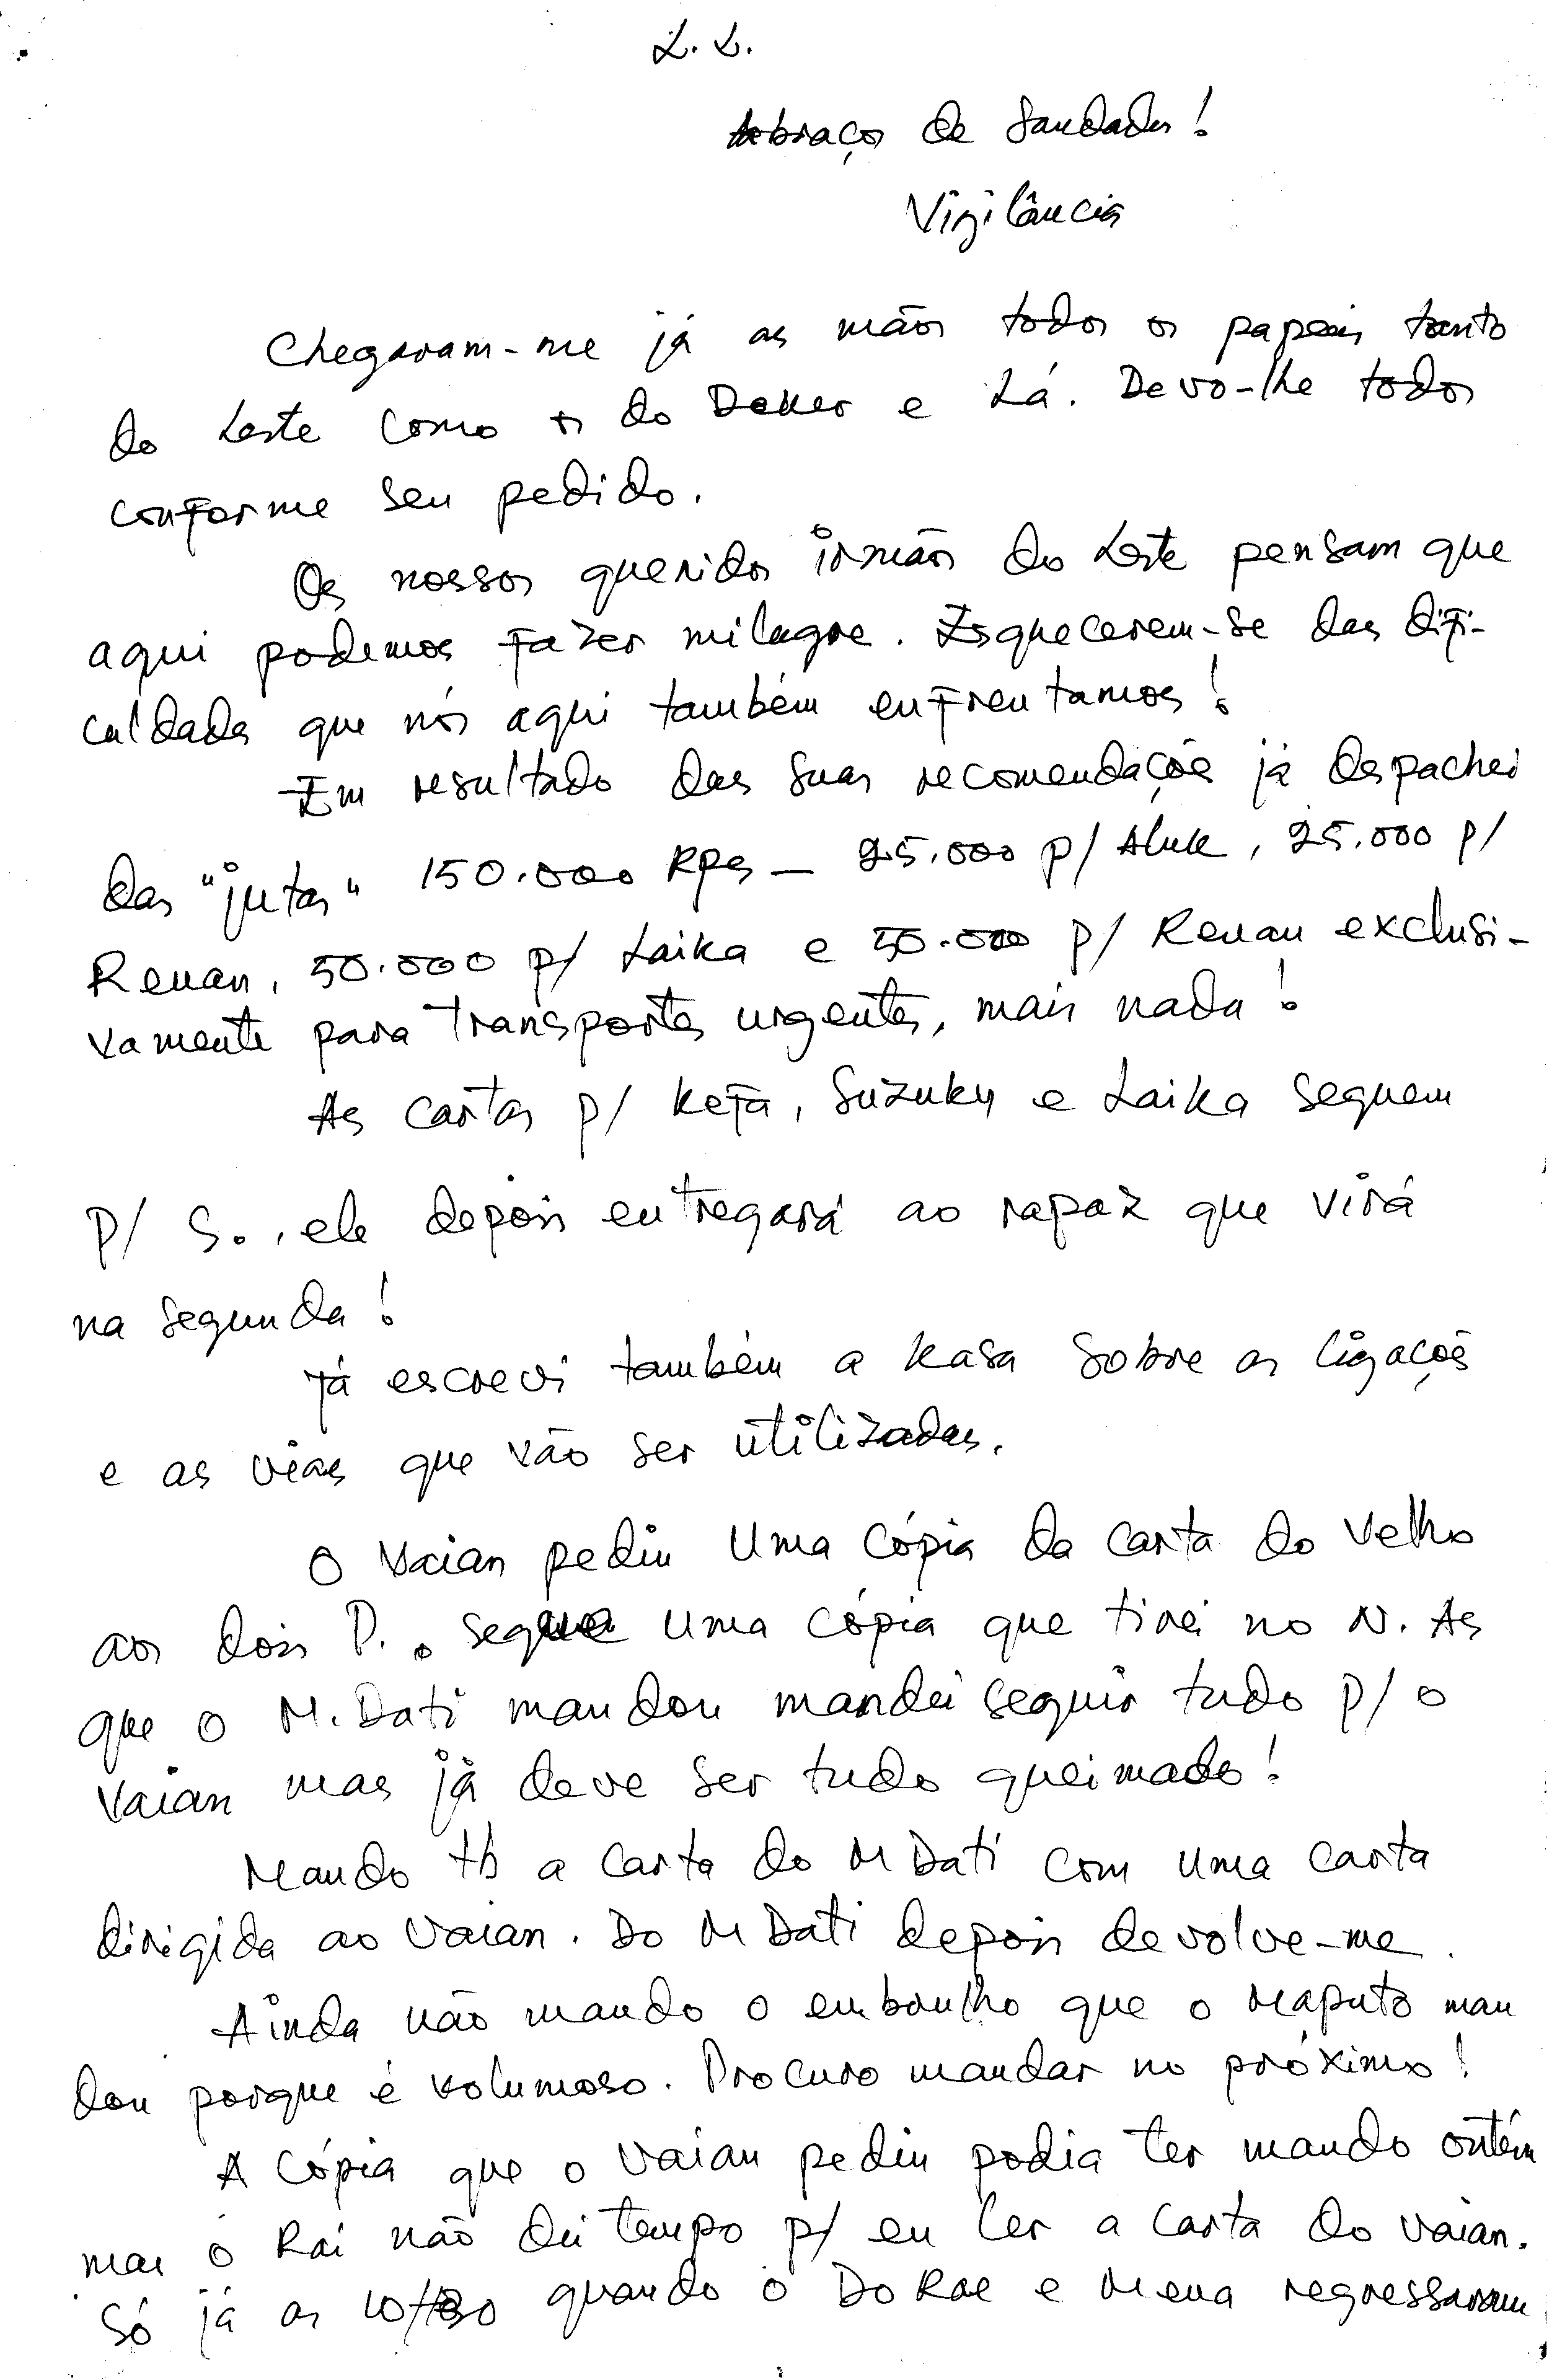 L. L.
Abraço de Saudades!
Vigilância
Chegaram-me já as mãos todos os papeis tanto
do Leste como os do Deker e Lá. Devo-lhe todos
conforme seu pedido.
Os nossos queridos irmãos do Leste pensam que
aqui podemos fazer milagre. Esquecerem-se das difi-
culdades que nós aqui também enfrentamos!
Em resultado das suas recomendações já despachei
das "jutas" 150.000 Rps — 25.000 p/ Aluk, 25.000 p/
Renan, 50.000 p/ Laika e 50.000 p/ Renan exclusi-
vamente para transportes urgentes, mais nada!
As cartas p/ Kefa, Suzuky e Laika seguem
P/ S., ele depois entregará ao rapaz que virá
na segunda!
Já escrevi também a Kasa sobre as ligações
e as vias que vão ser utilizadas.
O Vaian pediu uma cópia da carta do Velho
aos dois P.. segue uma cópia que tirei no N. As
que o M. Dati mandou mandei seguir tudo p/ o
Vaian mas já deve ser tudo queimado!
Mando tb a carta do M Dati com uma carta
dirigida ao Vaian. Do M Dati depois devolve-me.
Ainda não mando o embrulho que o Maputo man
dou porque é volumoso. Procuro mandar no próximo!
A cópia que o Vaian pediu podia ter mando ontém
mas o Rai não dei tempo p/ eu ler a carta do Vaian.
Só já as quando o DoRae e Mena regressaram